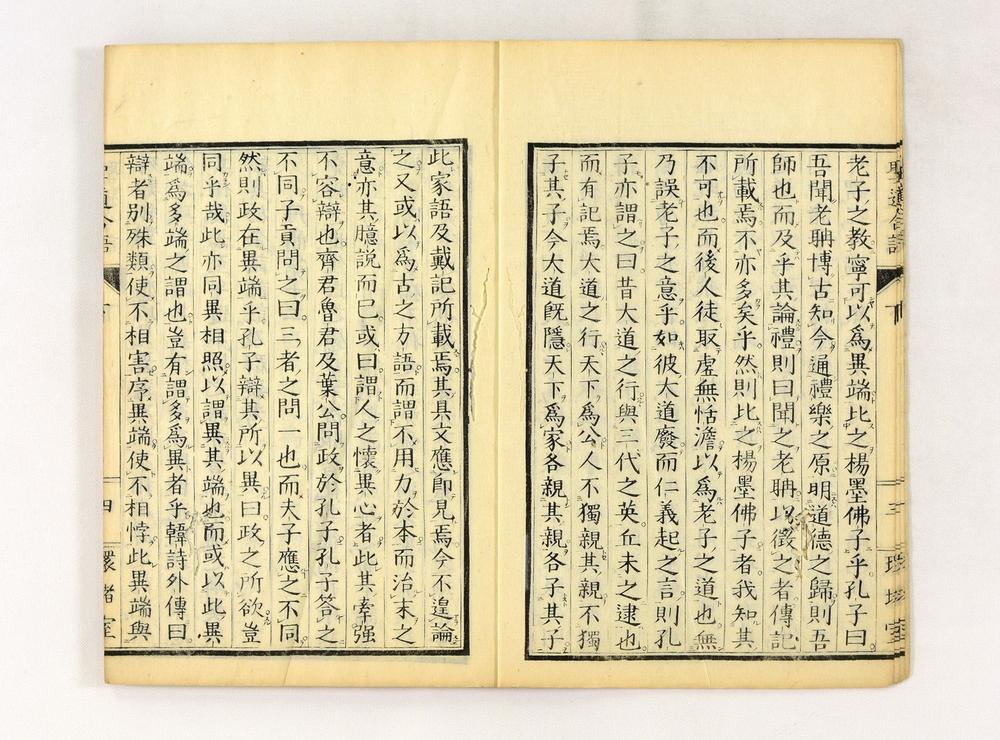 老子之教寧可以爲異端比之楊墨佛子乎孔子曰
吾聞老聃博古知今通禮樂之原明道德之歸則吾
師也而及乎其論禮則曰聞之老聃以徵之者傳記
所載焉不亦多矣乎然則比之楊墨佛子者我知其
不可也而後人徒取虚無恬澹以爲老子之道也無
乃誤老子之意乎如彼大道廢而仁義起之言則孔
子亦謂之曰昔大道之行與三代之英丘未之逮也
而有記焉大道之行天下爲公人不獨親其親不獨
子其子今大道既隱天下爲家各親其親各子其子
三
此家語及戴記所載焉其具文應即見焉今不遑論
之又或以爲古之方語而謂不用力於本而治末之
意亦其臆說而已或曰謂人之懷異心者此其牽強
不容辯也齊君魯君及葉公問政於孔子孔子答之
不同子貢問之曰三者之問一也而夫子應之不同
然則政在異端乎孔子辯其所以異曰政之所欲豈
同乎哉此亦同異相照以謂異其端也而或以此異
端爲多端之謂也豈有謂多爲異者乎韓詩外傳曰
辯者別殊類使不相害序異端使不相悖此異端與
四
環堵室